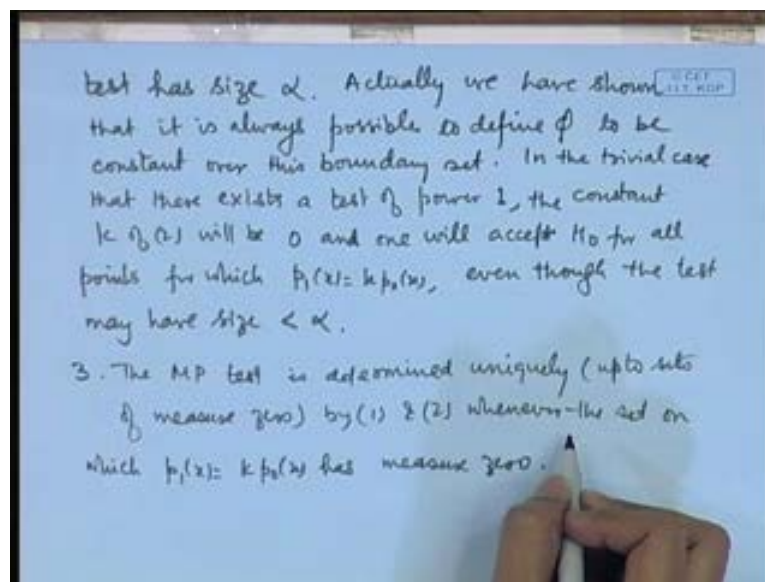 test has size α. Actually we have shown
© CET
I.I.T. KGP
that it is always possible to define φ to be
constant over this boundary set. In the trivial case
that there exists a test of power 1, the constant
k of (2) will be 0 and one will accept H₀ for all
points for which p₁(x) = k p₀(x), even though the test
may have size < α.
3. The MP test is determined uniquely (upto sets
of measure zero) by (1) & (2) whenever the set on
which p₁(x) = k p₀(x) has measure zero.